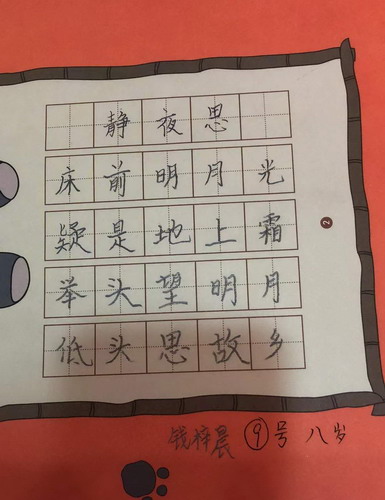 静夜思
床前明月光
疑是地上霜
举头望明月
低头思故乡
2
钱梓晨 ⑨号 八岁